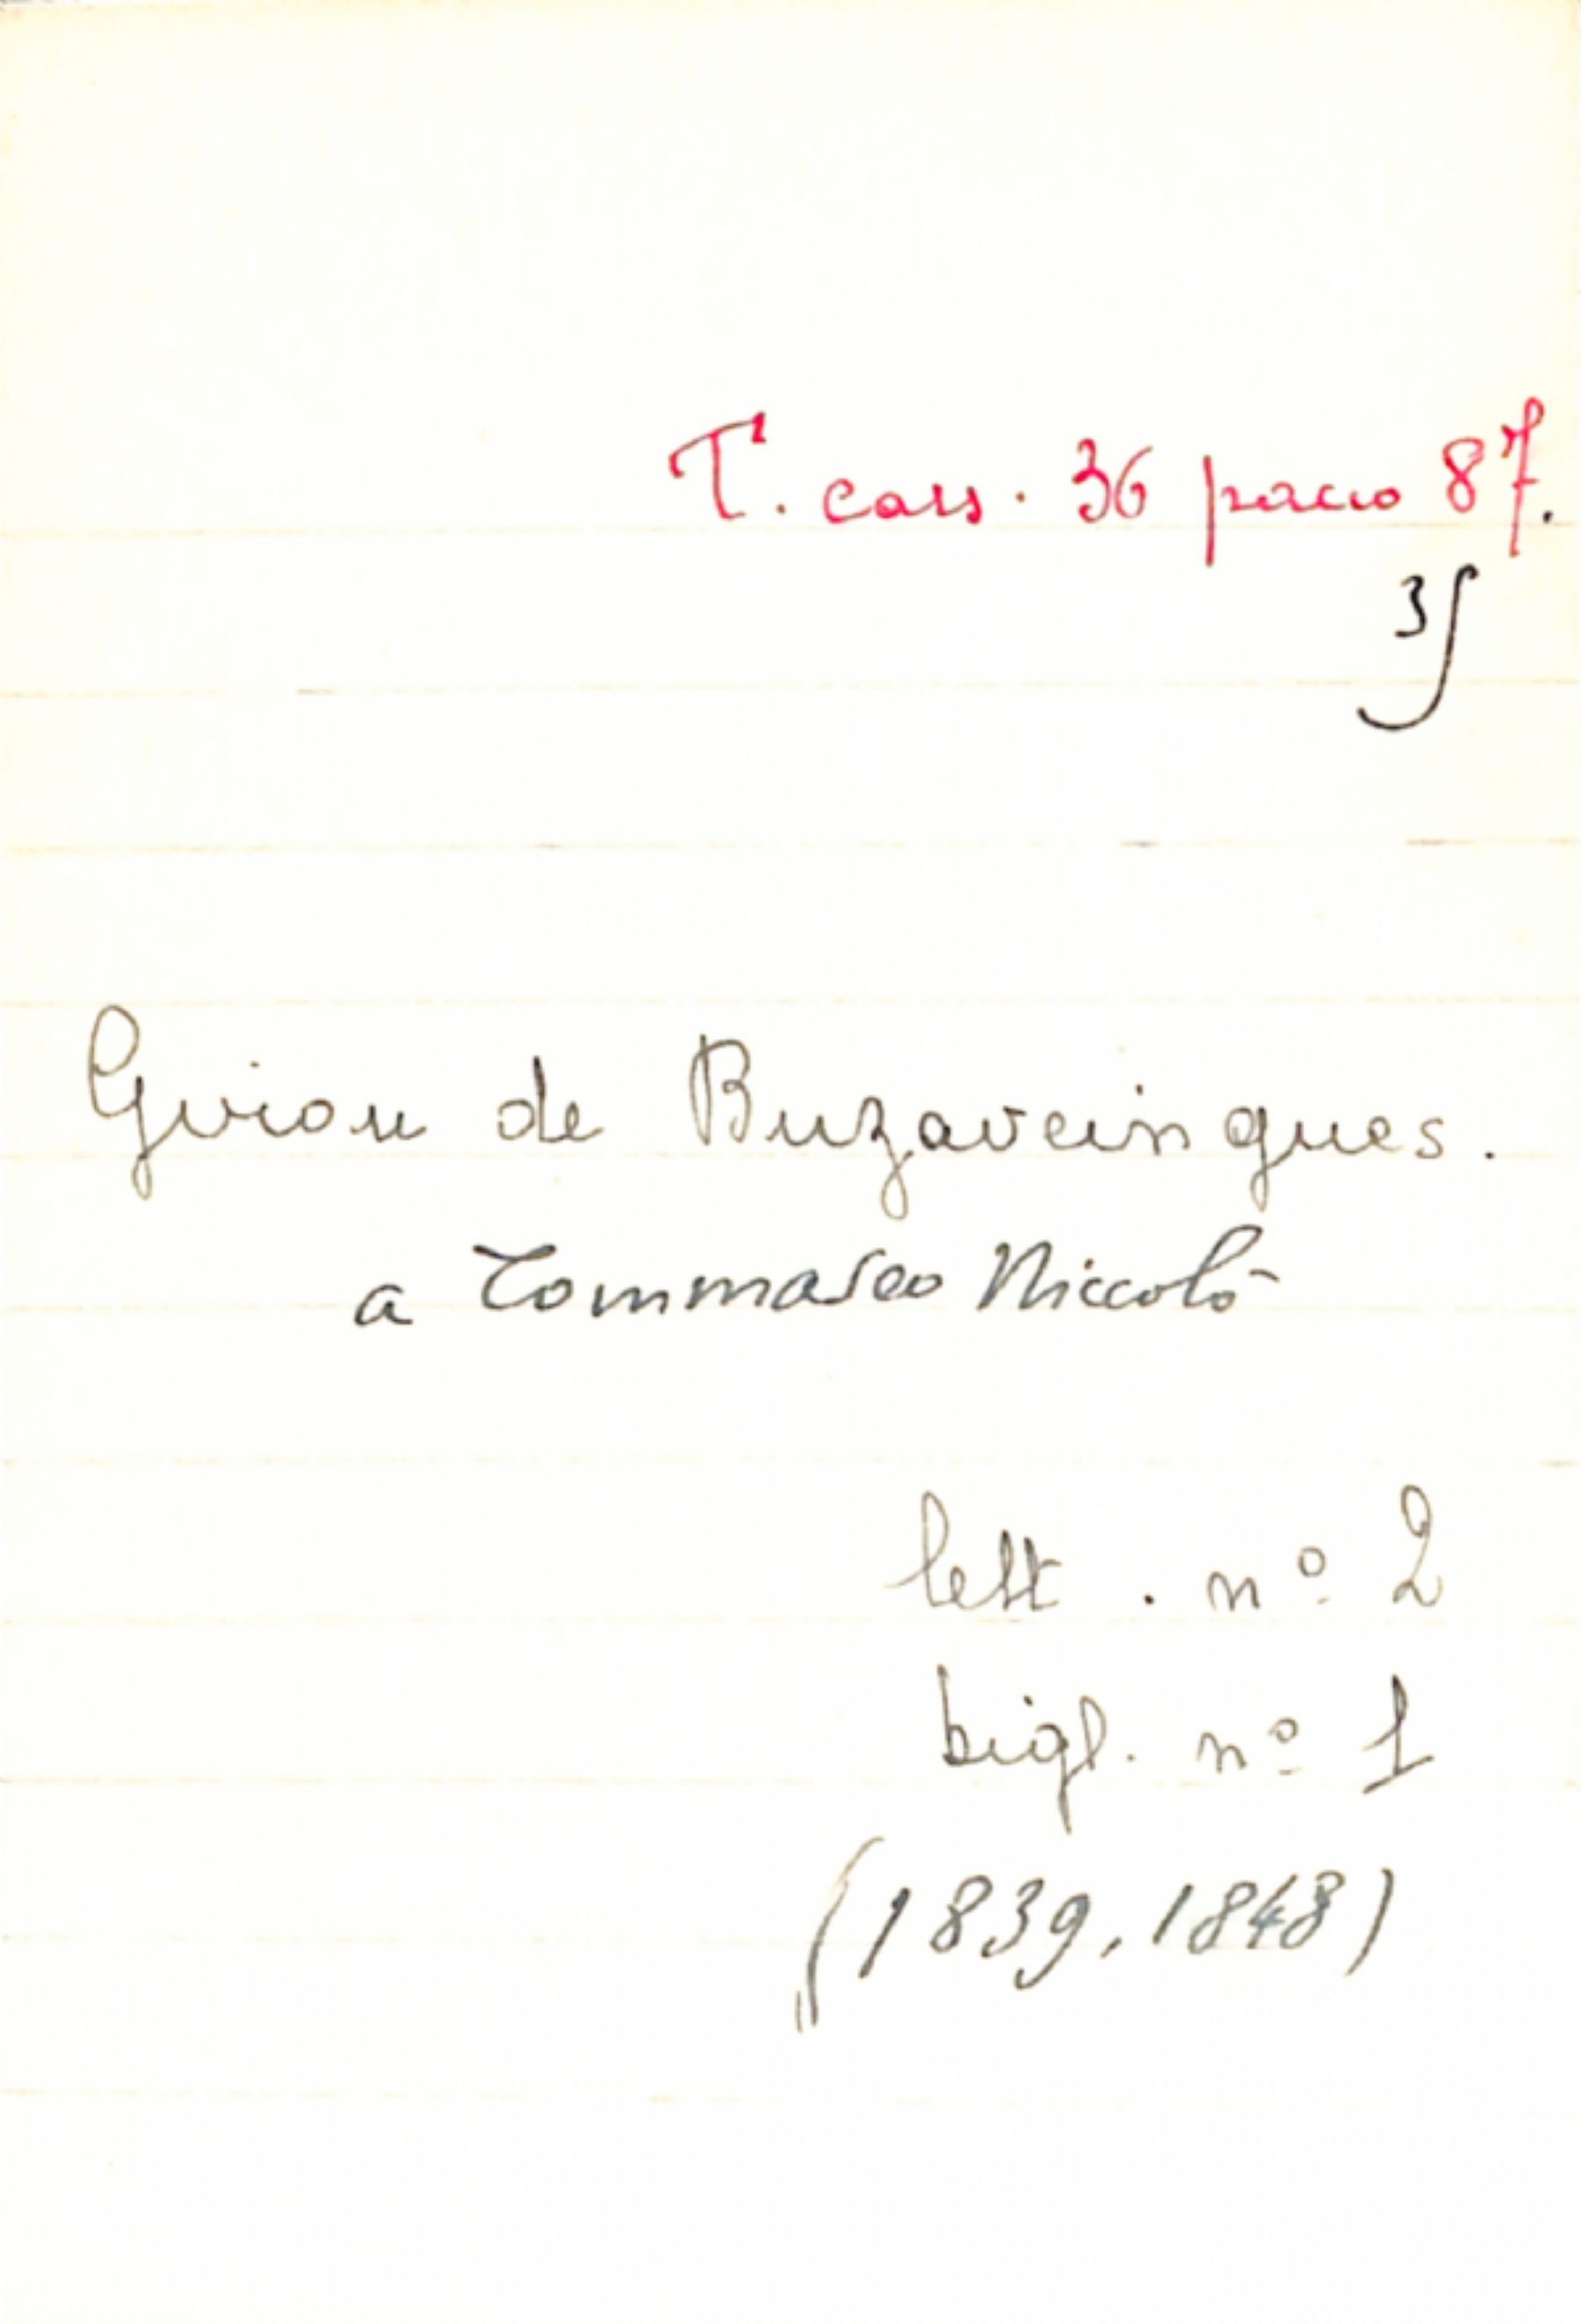 T. cass. 36 pacco 87.
3
Giron de Buzaveingues.
a Tommaseo Niccolò
lett. n° 2
bigl. n° 1
(1839, 1848)